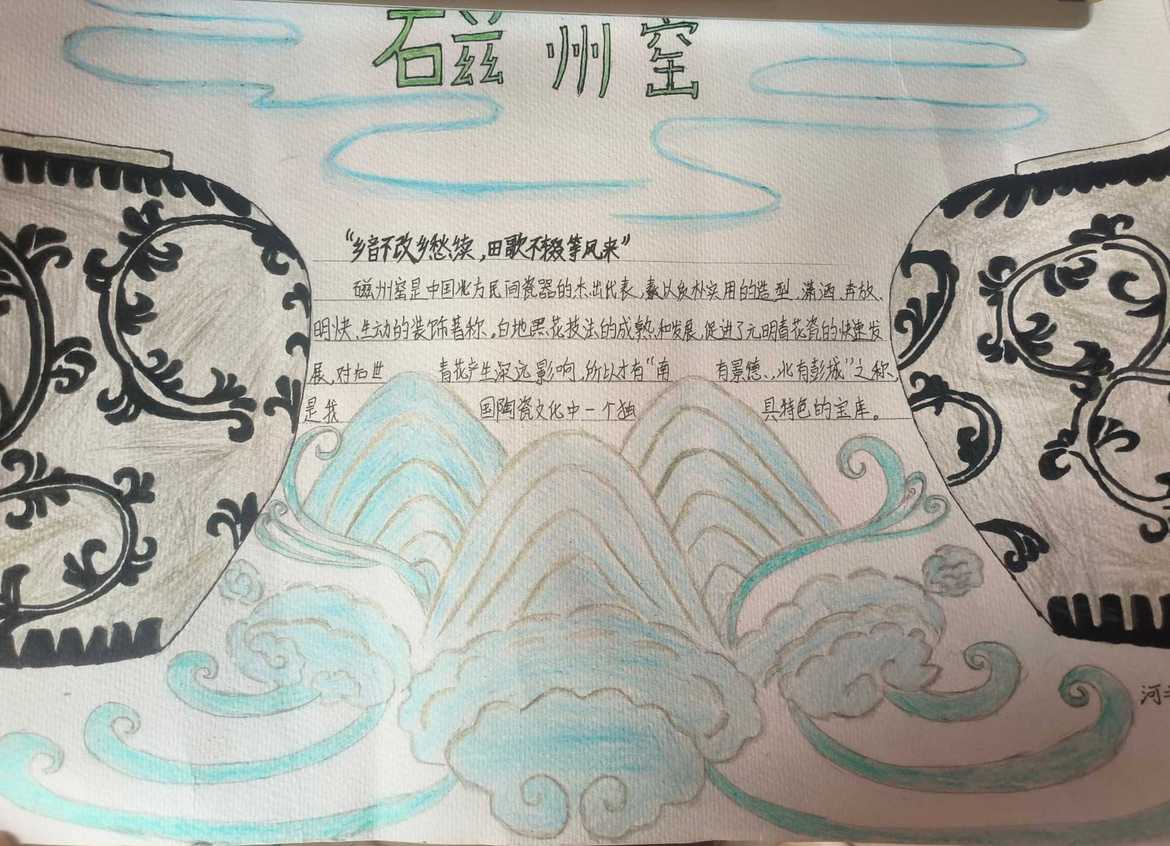 磁州窑
“乡音不改乡愁续,田歌不辍等风来”
磁州窑是中国北方民间瓷器的杰出代表,素以质朴实用的造型,潇洒、奔放、
明快、生动的装饰著称。白地黑花技法的成熟和发展,促进了元明青花瓷的快速发
展,对后世青花产生深远影响,所以才有“南有景德、北有彭城”之称、
是我国陶瓷文化中一个独具特色的宝库。
河